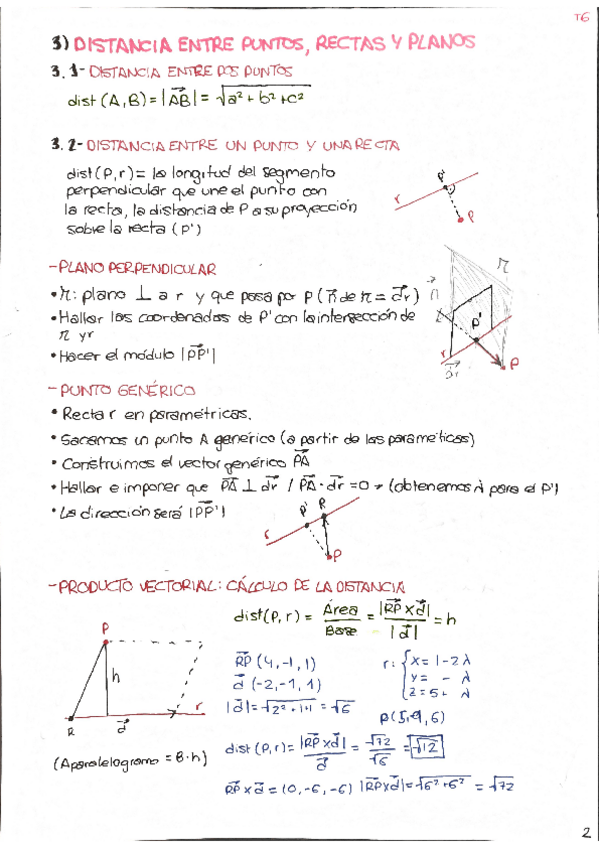 T6
3) DISTANCIA ENTRE PUNTOS, RECTAS Y PLANOS
3.1- DISTANCIA ENTRE DOS PUNTOS
dist (A,B) = |AB| = √a² + b² + c²
3.2- DISTANCIA ENTRE UN PUNTO Y UNA RECTA
dist (P,r) = la longitud del segmento
perpendicular que une el punto con
la recta, la distancia de P a su proyección
sobre la recta (P')
r
P'
P
- PLANO PERPENDICULAR
• π: plano ⊥ a r y que pasa por P (n⃗ de π = d⃗r)
• Hallar las coordenadas de P' con la intersección de
π y r
• Hacer el módulo |PP'|
n⃗
π
P'
r
d⃗r
P
- PUNTO GENÉRICO
• Recta r en paramétricas.
• Sacamos un punto A genérico (a partir de las paramétricas)
• Construimos el vector genérico PA
• Hallar e imponer que PA ⊥ d⃗r / PA · d⃗r = 0 → (obtenemos λ para el P')
• La dirección será |PP'|
r
P'
R
P
- PRODUCTO VECTORIAL: CÁLCULO DE LA DISTANCIA
dist (P, r) = Área/Base = |RP x d⃗|/|d⃗| = h
P
h
R
d⃗
r
(Aparalelogramo = B·h)
RP (4,-1,1)
d⃗ (-2,-1,1)
|d⃗| = √2²+1+1 = √6
r: { x = 1-2λ
y = - λ
z = 5+ λ
P(5,-1,6)
dist (P,r) = |RP x d⃗|/d⃗ = √72/√6 = √12
RP x d⃗ = (0,-6,-6) |RP x d⃗| = √6²+6² = √72
2